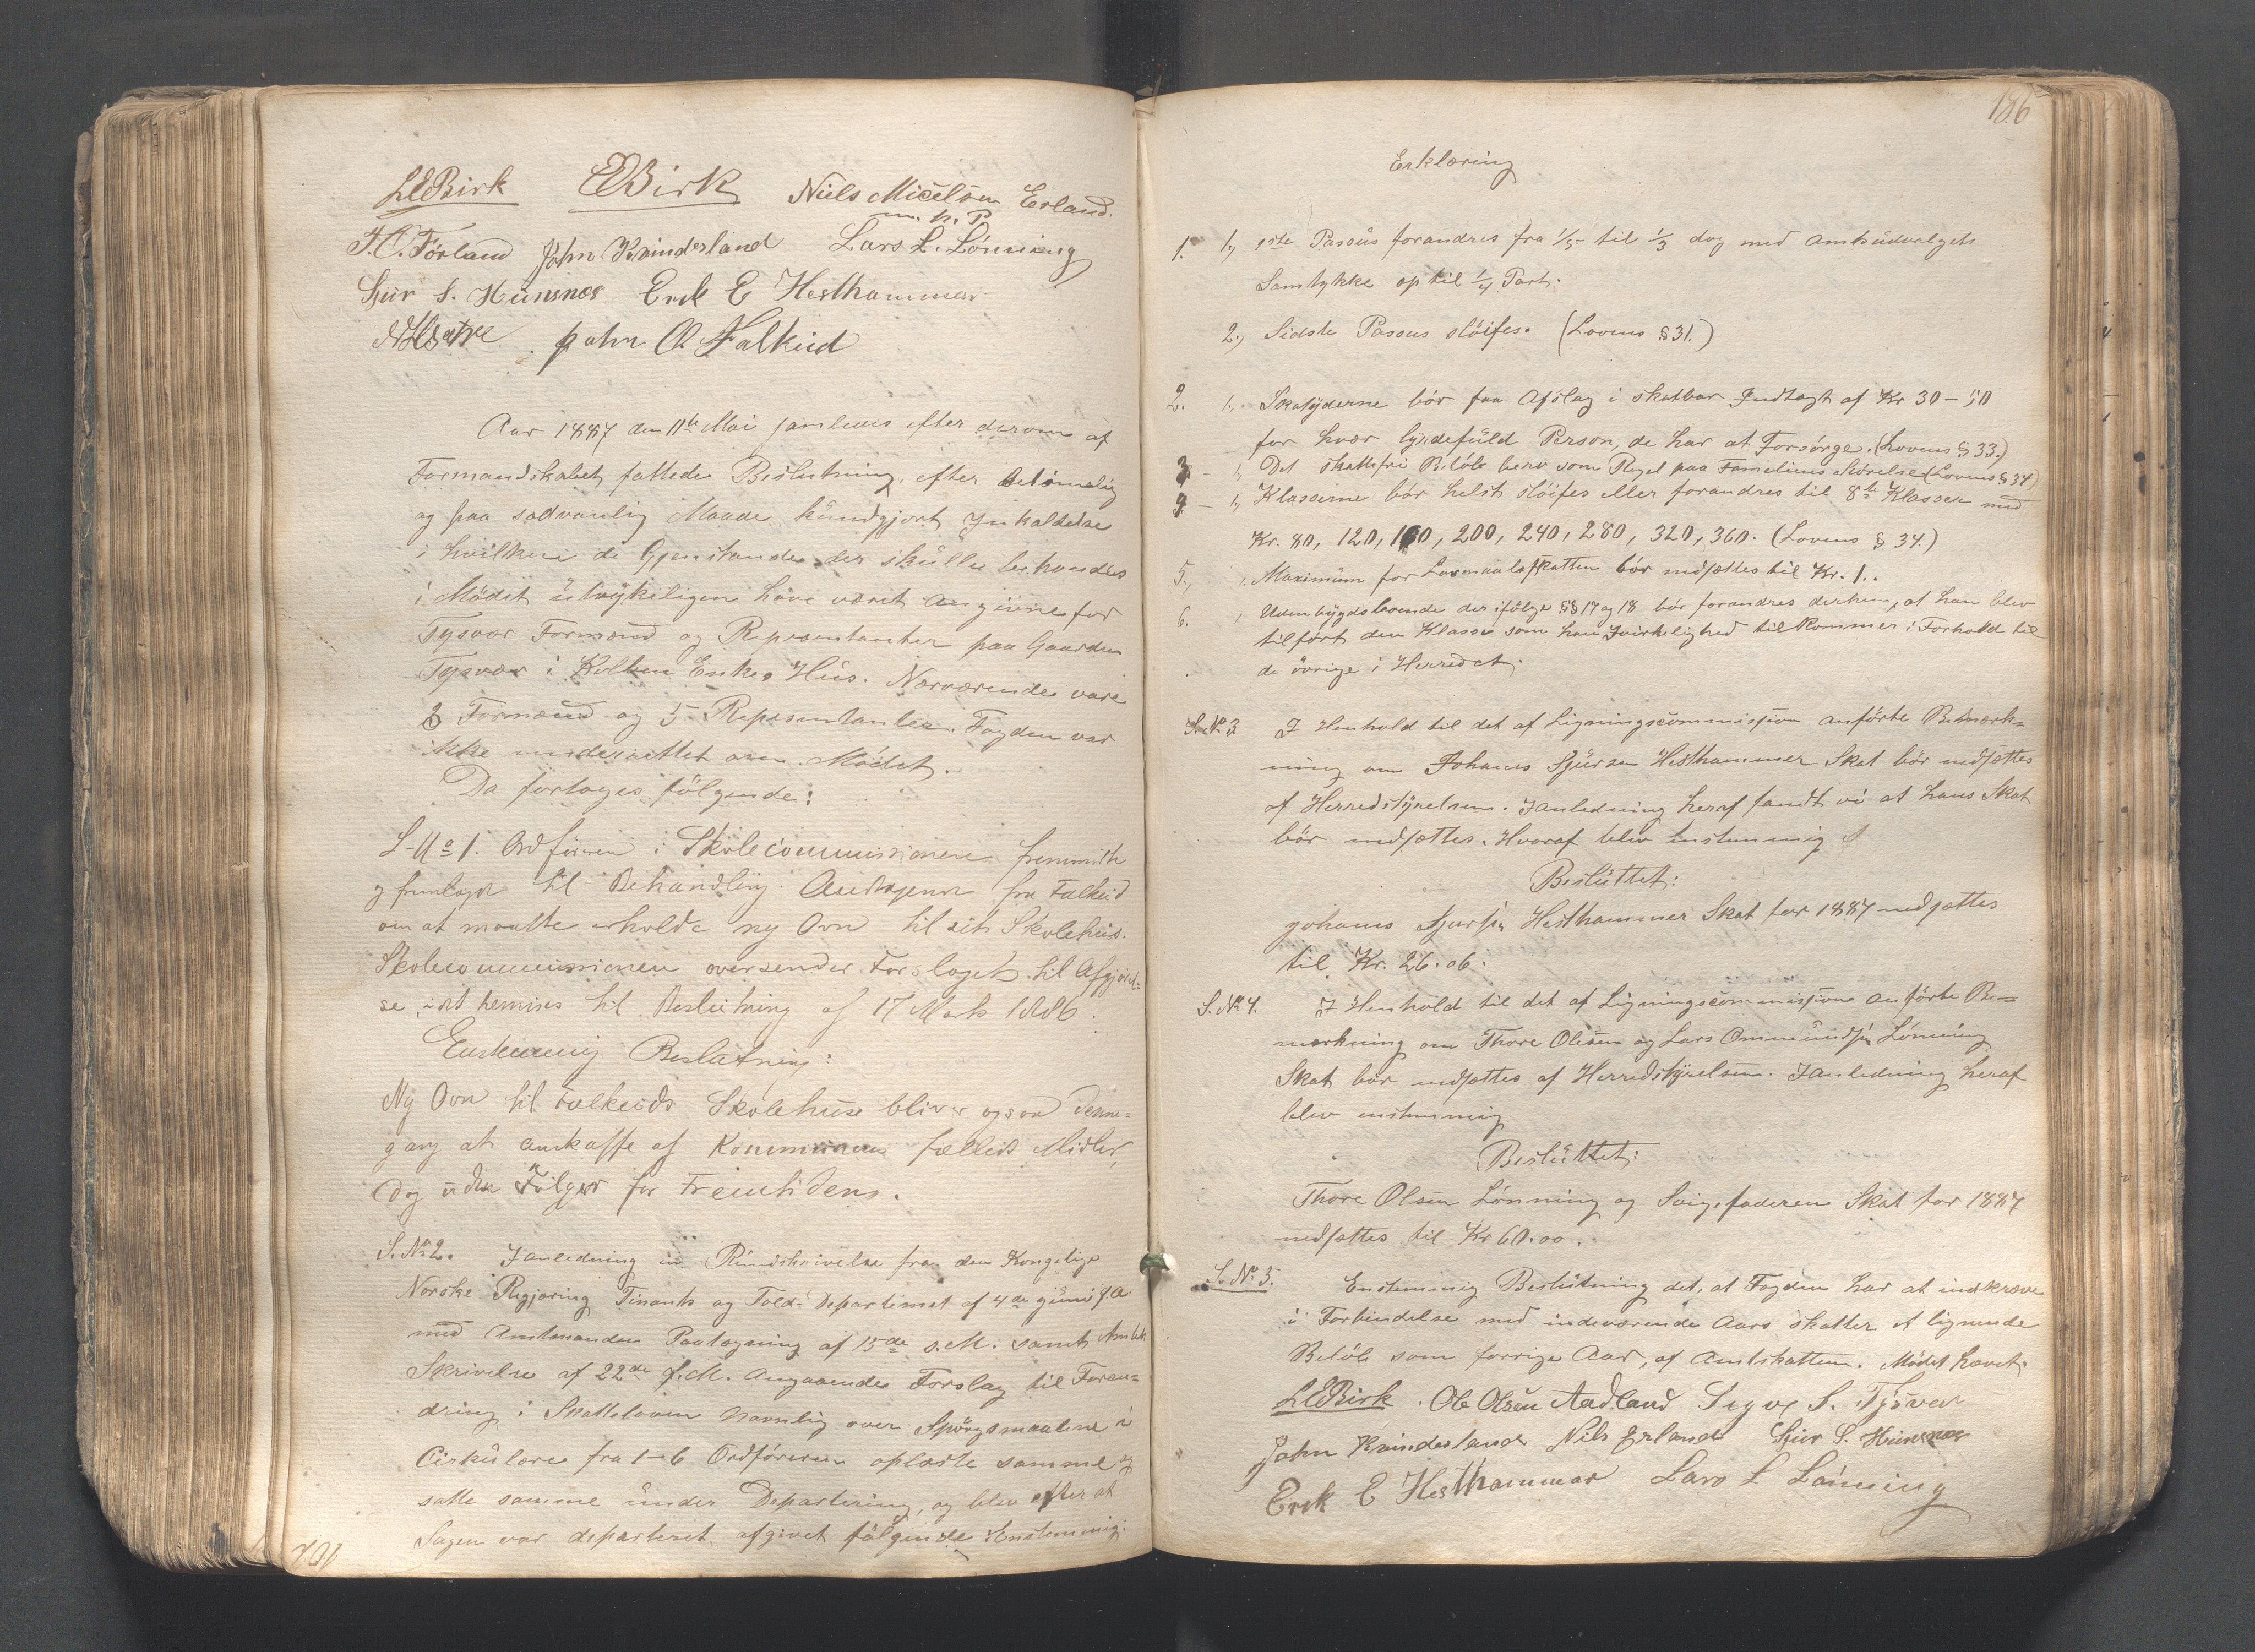 LEBirk EBirk Niels Micelsen Erland.
m. h. P.
T. O. Førland John Kvinderland Lars L. Lønning
Sjur S. Hünsnæs Erek E Hesthammar
John O. Falkeid
Aar 1887 den 11te Mai samledes efter derom af
Formandskabet fattede Beslutning, efter betimelig
og paa sædvanlig Maade kündgjort Inkaldelse
i hvilken de Gjenstande der skülle behandles
i Mødet üdtrykeligen have været angivne for
Tysvær Formænd og Repesentanter paa Gaarden
Tysvær i Enkes Hüs. Nærværende vare
3 Formænd og 5 Repesentanter. Fogden var
ikke underrettet om Mødet.
Da fortoges følgende:
S-No 1. Ordføreren i Skolecommissionen fremmødte
og fremlagde til Behandling fra Falkeid
om at maatte erholde ny Ovn til sit Skolehüs.
Skolecommissionen oversender Forslaget til Afgjørel-
se, idet henvises til Beslütning af 17 Marts 1886.
Enstemmig Beslütning:
Ny Ovn til Falkeids Skolehüse bliver ogsaa denne-
gang at anskaffe af Kommünens fælleds Midler,
dog üden Følger for Fremtidens.
S. No 2. I anledning en Rundskrivelse fra den Kongelige
Norske Regjæring Finants og Told-Departimet af 4de f. A.
med Amtmanden Paategning af 15de s. M. samt Amtets
Skrivelse af 22de s. M. Angaaende Forslag til Foran-
dring i Skatteloven navnlig over Spørgsmaalene i
Cirkülære fra 1-6 Ordføreren oplæste samme og
satte samme ünder Departering, og blev efter at
Sagen var departeret afgivet følgende Enstemmig:
186
Erklæring
1. 1., 1ste Passüs forandres fra 1/5 til 1/3 dog med Amtsüdvalgets
Samtykke op til 1/4 Part.
2., Sidste Passus sløifes. (Lovens § 31.)
2. 1., Skatyderne bør faa Afslag i skatbar Indtægt af Kr 30 - 50
for hvær byrdefüld Person, de har at Forsørge. (Lovens § 33.)
3 - 1, Det skattefri Beløb bero som Regel paa Fameliens Størelse (Lovens § 34)
4 - 1, Klasserne bør helst sløifes eller forandres til 8te Klasser med
Kr. 80, 120, 160, 200, 240, 280, 320, 360. (Lovens § 34.)
5., 1. Maximüm for bør nedsættes til Kr. 1..
6. , Udenbygdsboende der ifølge §§ 17 og 18 bør forandres derhen, at han blev
tilført den Klasse som han Ivirkelighed tilkommer i Forhold til
de øvrige i Herredet.
S. No 3 I Henhold til det af Ligningscommissjion anførte Bemærk=
ning om Johanes Sjürsen Hesthammer Skat bør nedsættes
af Herredstyrelsen. I anledning heraf fandt vi at hans Skat
bør nedsættes. Hvoraf blev Enstemmig
Beslüttet:
Johanes Sjursen Hesthammer Skat for 1887 nedsættes
til Kr. 26.06.
S. No 4. I Henhold til det af Ligningscommissjion anførte Be=
mærkning om Thore Olesen og Lars Ommündsen Lønning
Skat bør nedsættes af Herredstyrelsen. I anledning heraf
blev enstemmig
Beslüttet:
Thore Olsen Lønning og Svigefaderen Skat for 1887
nedsættes til Kr 60.00.
S. No 5. Enstemmig Beslütning det, at Fogden har at indkræve
i Forbindelse med indeværende Aars skatter et lignende
Beløb som forrige Aar, af Amtskatten. Mødet hævet.
LEBirk. Ole Olsen Aadland Sigve S. Tysver
John Kvinderlande Nils Erland Sjur S. Hünsnæs
Erek E Hesthammar Lars L Lønning